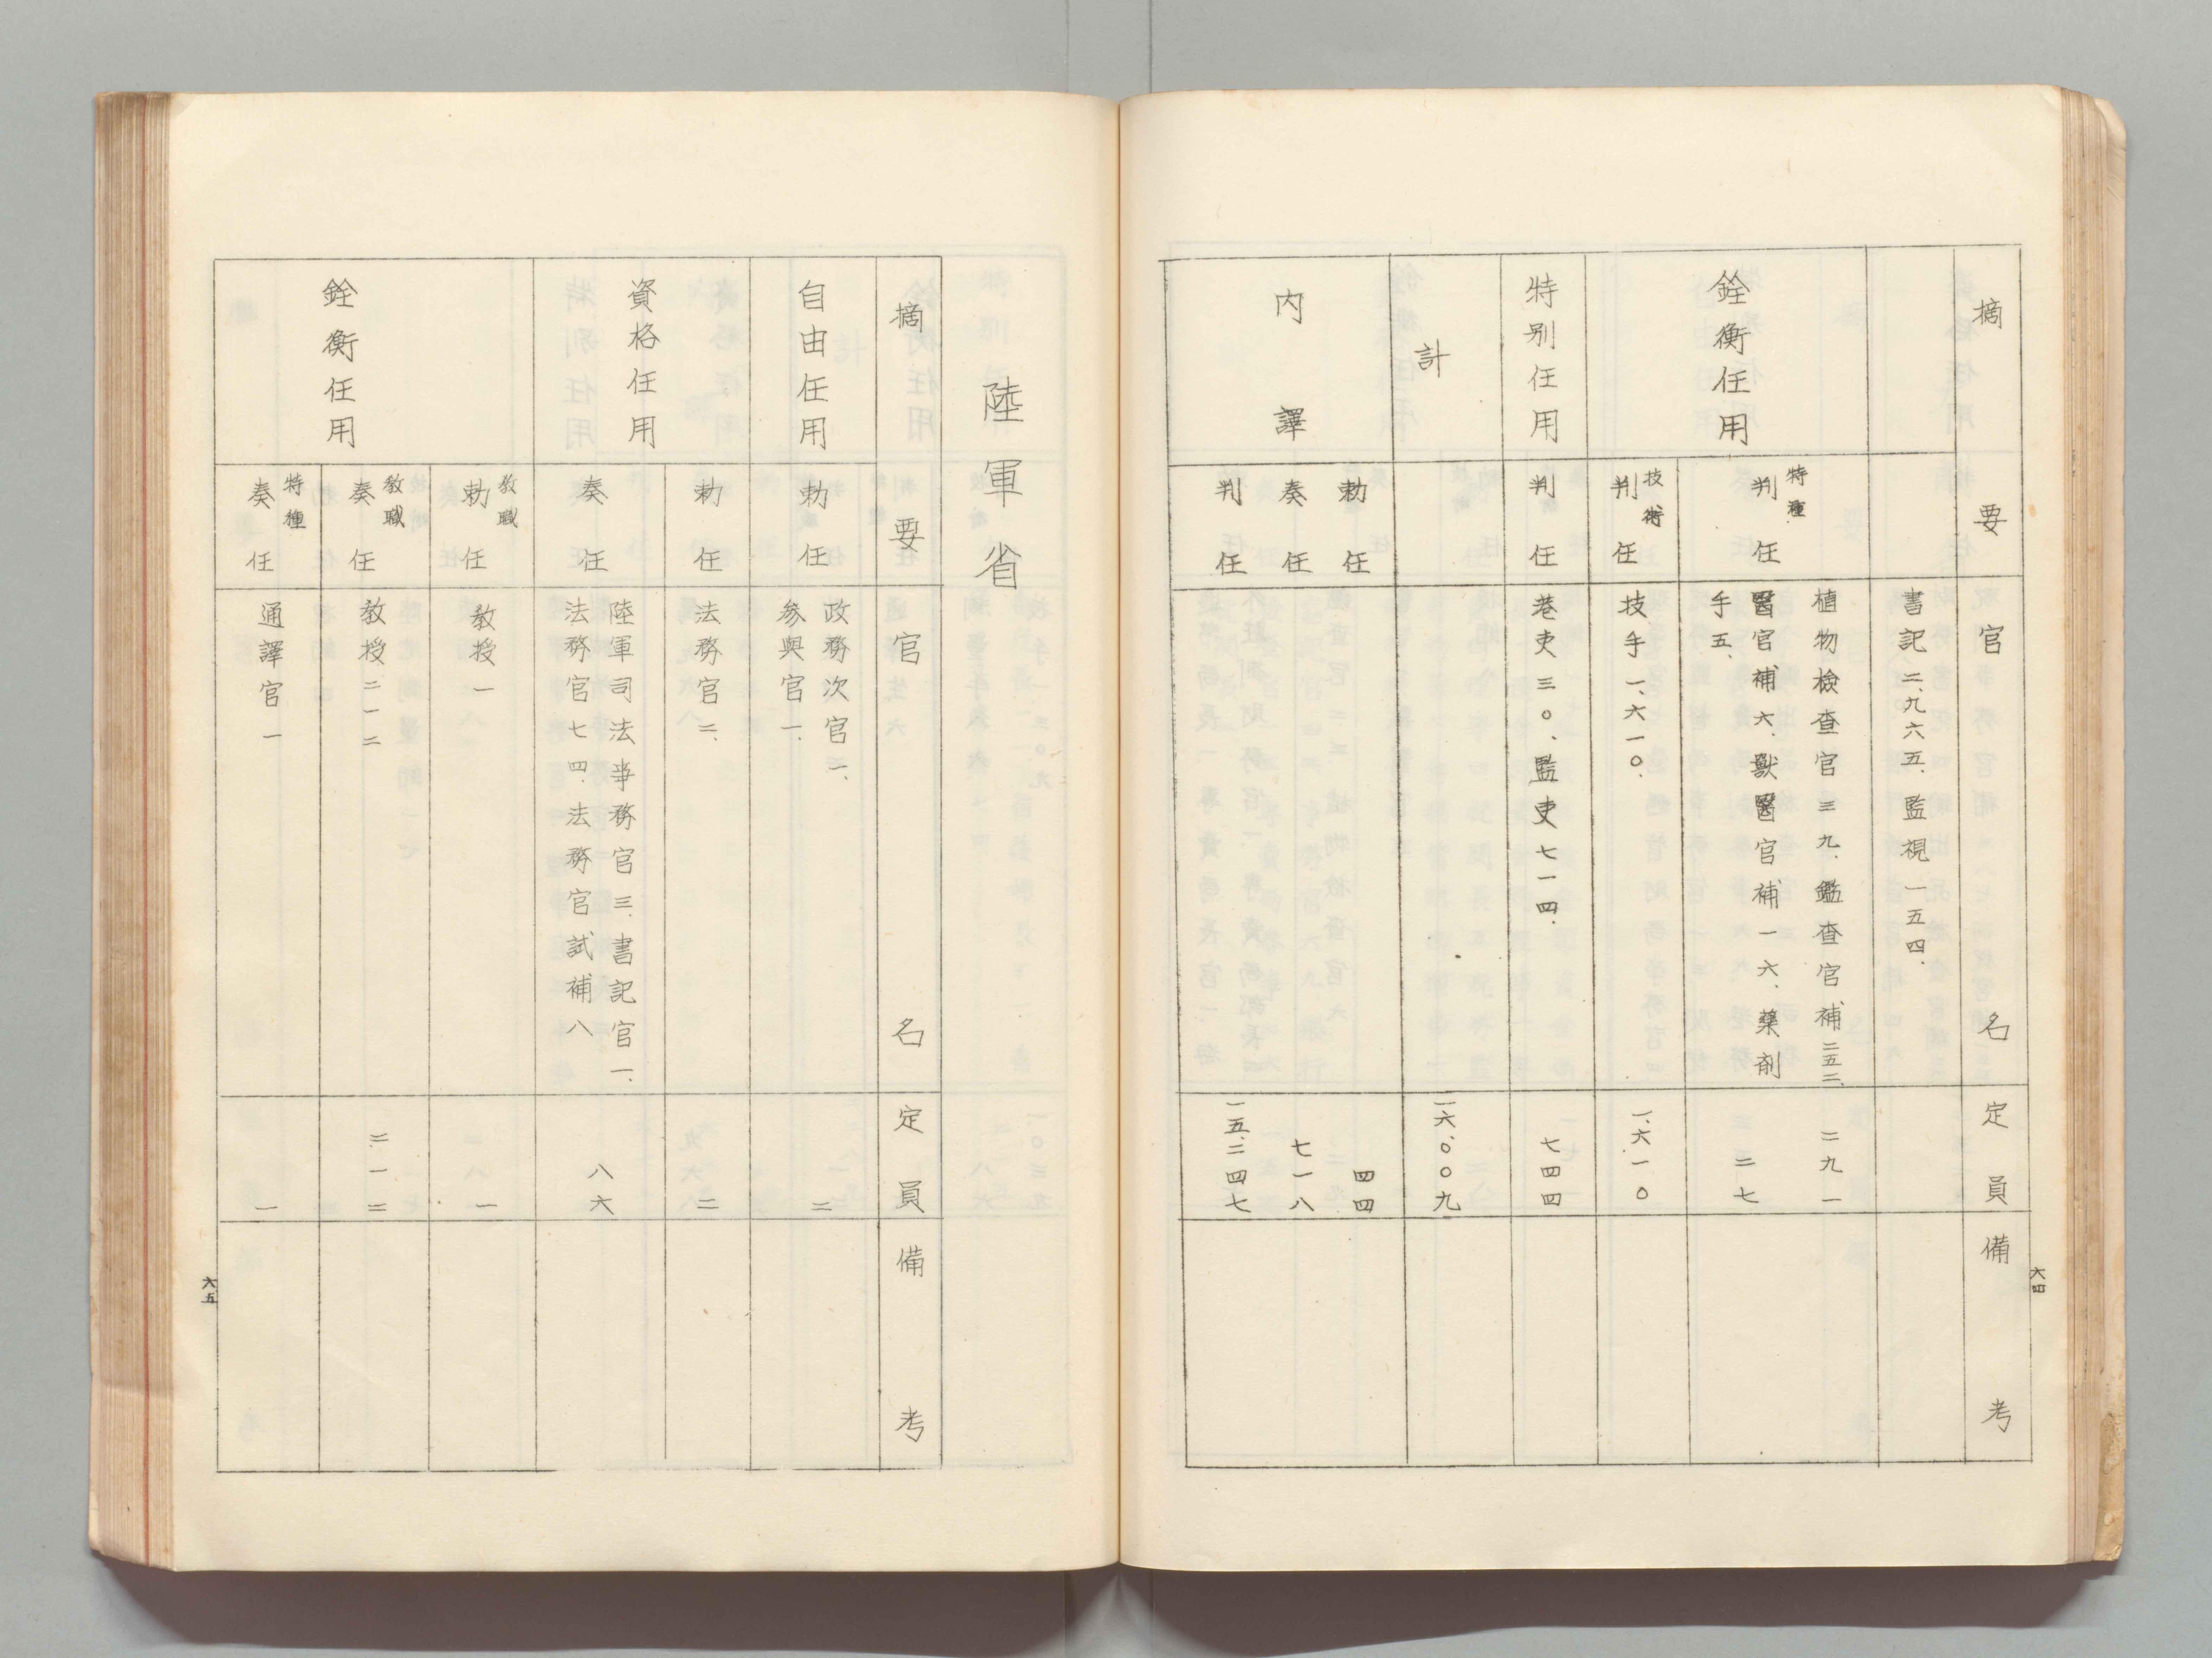 摘要
官名
定員
備考
書記二、九六五、監視一五四、
銓衡任用
特種
判任
植物檢査官三九、鑑査官補二五二、
醫官補六、獸醫官補一六、藥剤
手五、
二九一
二七
技術
判任
技手一、六一〇、
一、六一〇
特別任用
判任
巷吏三〇、監吏七一四、
七四四
計
一六、〇〇九
内譯
勅任
四四
奏任
七一八
判任
一五、二四七
六四
陸軍省
摘要
官名
定員
備考
自由任用
勅任
政務次官一、
参與官一、
二
資格任用
勅任
法務官二、
二
奏任
陸軍司法事務官三、書記官一、
法務官七四、法務官試補八
八六
銓衡任用
敎職
勅任
敎授一
一
敎職
奏任
敎授二一二
二一二
特種
奏任
通譯官一
一
六五